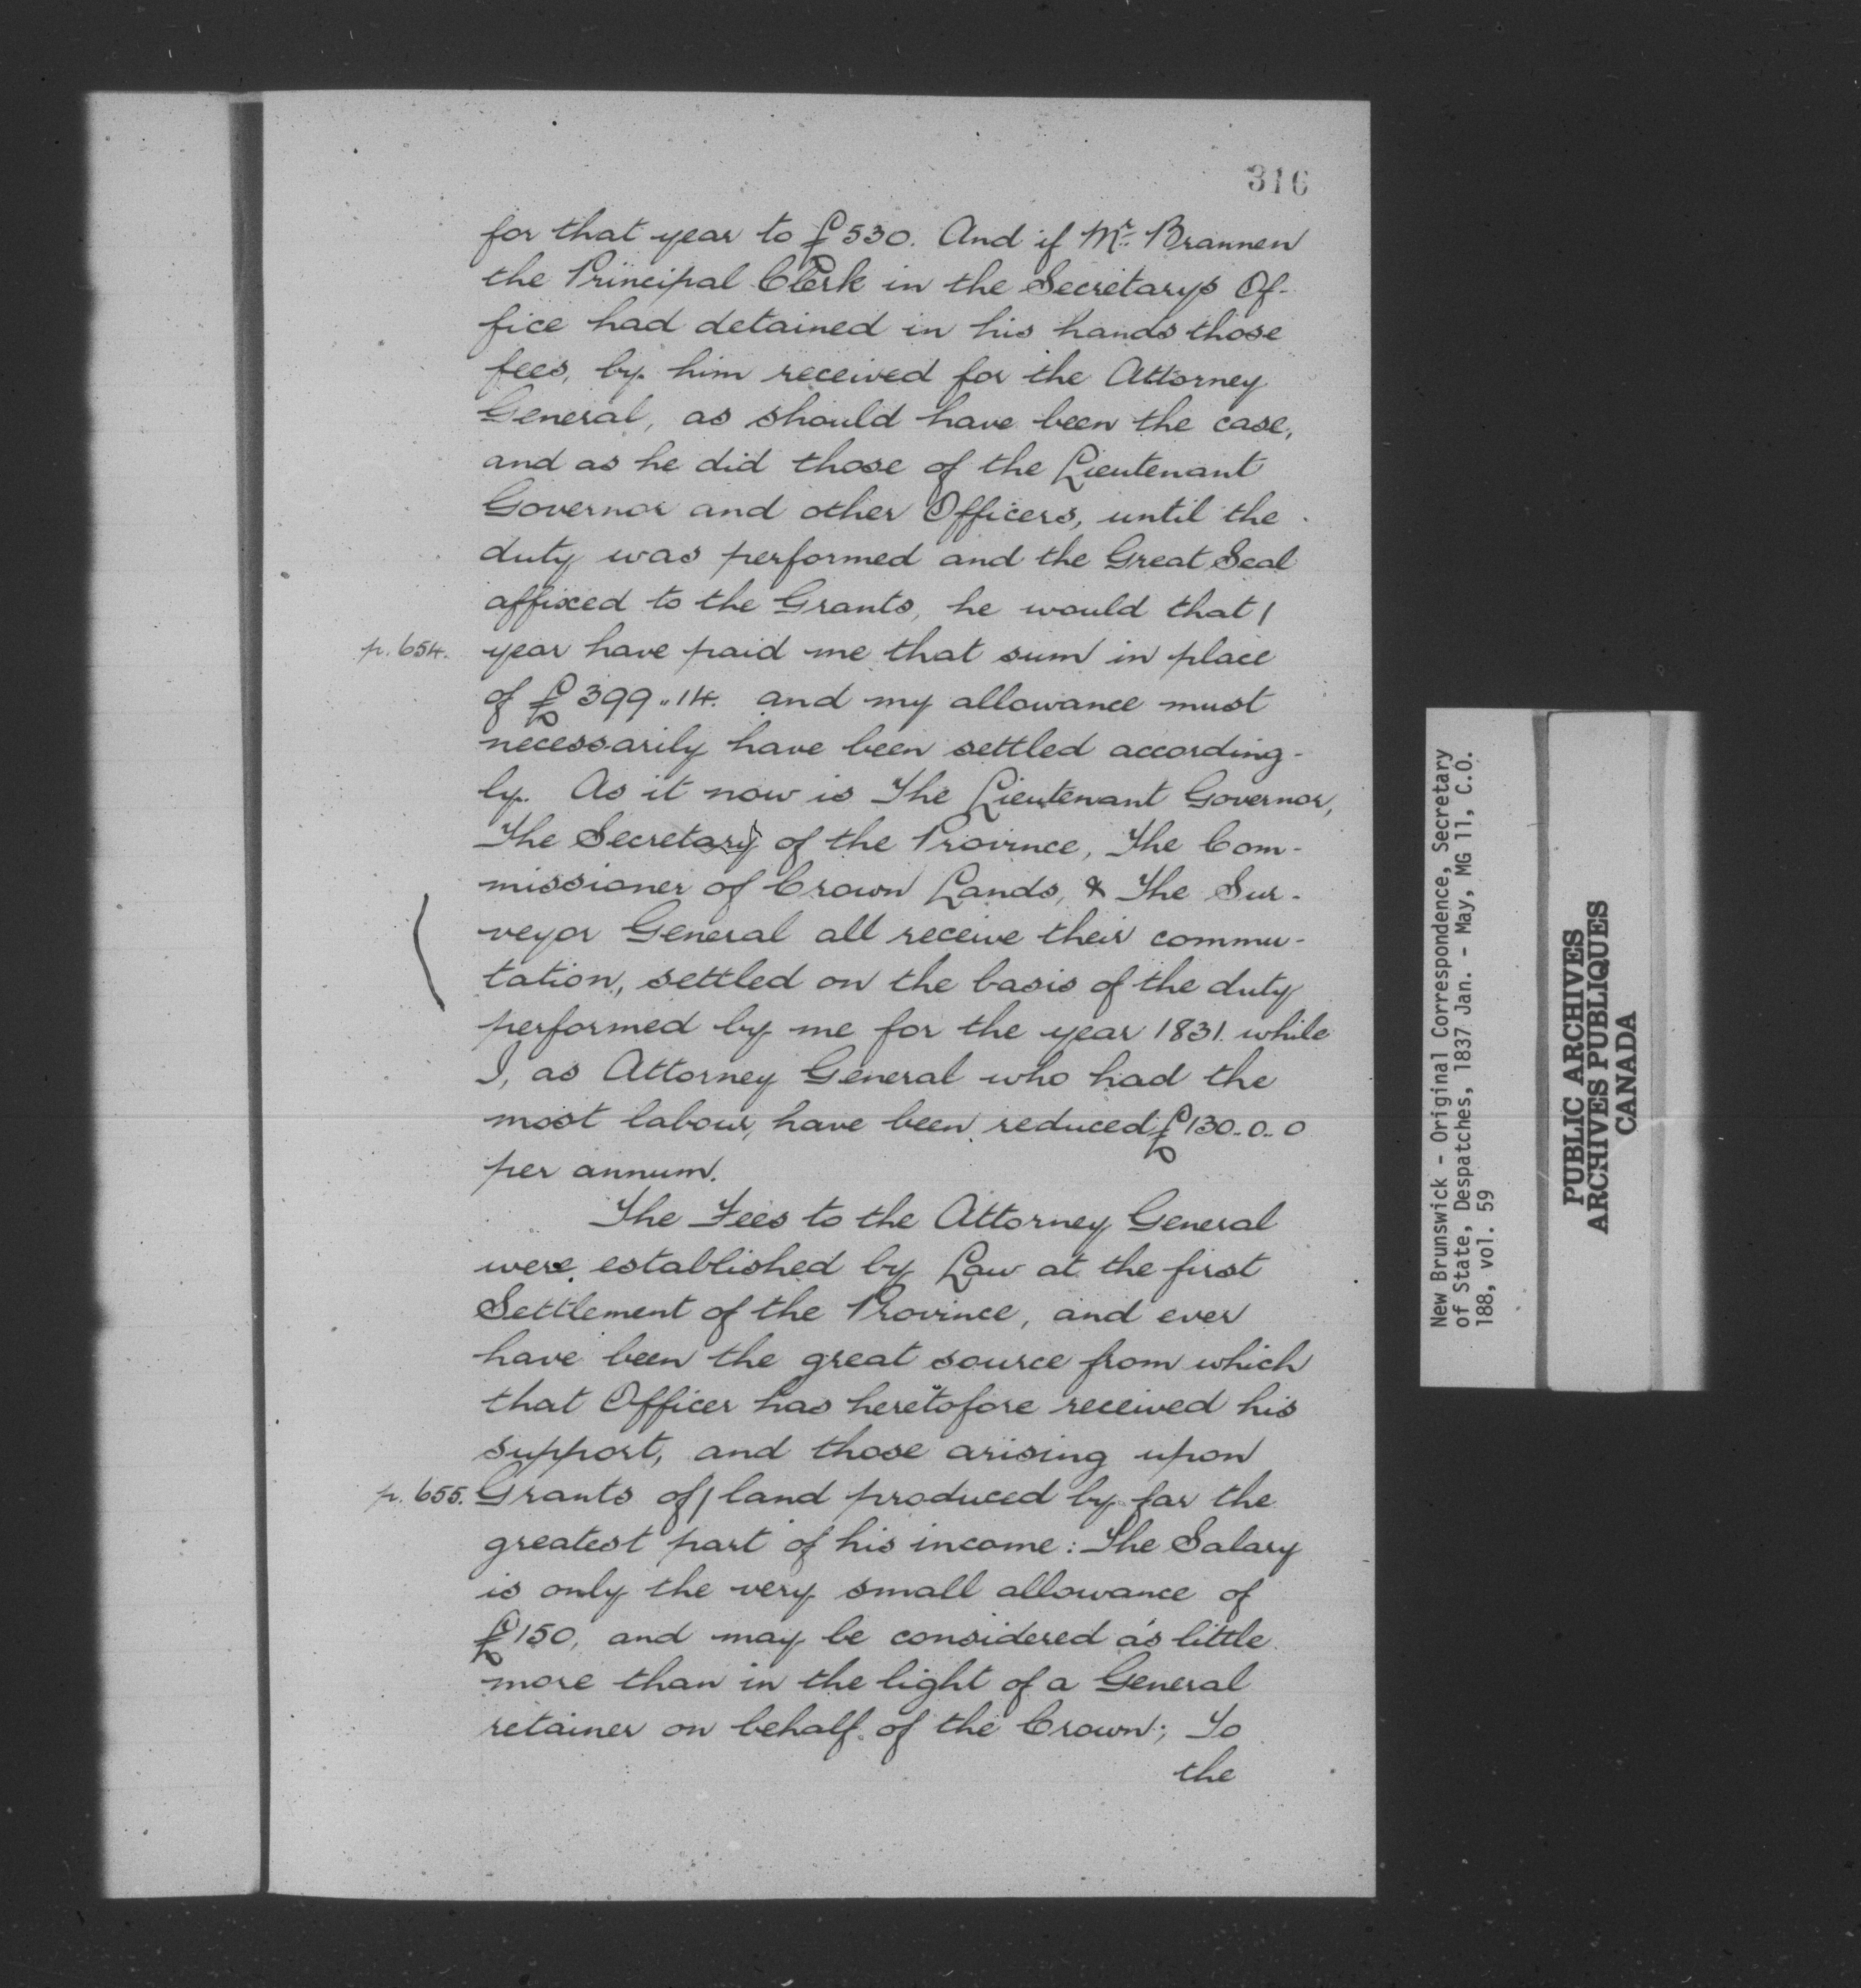 316
for that year to £530. And if Mr. Brannen
the Principal Clerk in the Secretarys Of-
fice had detained in his hands those
fees, by him received for the Attorney
General, as should have been the case,
and as he did those of the Lieutenant
Governor and other Officers, until the
duty was performed and the Great Seal
affixed to the Grants, he would that /
p. 654. year have paid me that sum in place
of £399..14. and my allowance must
necessarily have been settled according-
ly. As it now is The Lieutenant Governor,
The Secretary of the Province, The Com-
missioner of Crown Lands, & The Sur-
veyor General all receive their commu-
tation, settled on the basis of the duty
performed by me for the year 1831. while
I, as Attorney General who had the
most labour, have been reduced £130..0..0
per annum.
The Fees to the Attorney General
were established by Law at the first
Settlement of the Province, and ever
have been the great source from which
that Officer has heretofore received his
support, and those arising upon
p. 655. Grants of / land produced by far the
greatest part of his income: The Salary
is only the very small allowance of
£150, and may be considered as little
more than in the light of a General
retainer on behalf of the Crown; To
the
New Brunswick - Original Correspondence, Secretary
of State, Despatches, 1837 Jan. - May, MG 11, C.O.
188, vol. 59
PUBLIC ARCHIVES
ARCHIVES PUBLIQUES
CANADA